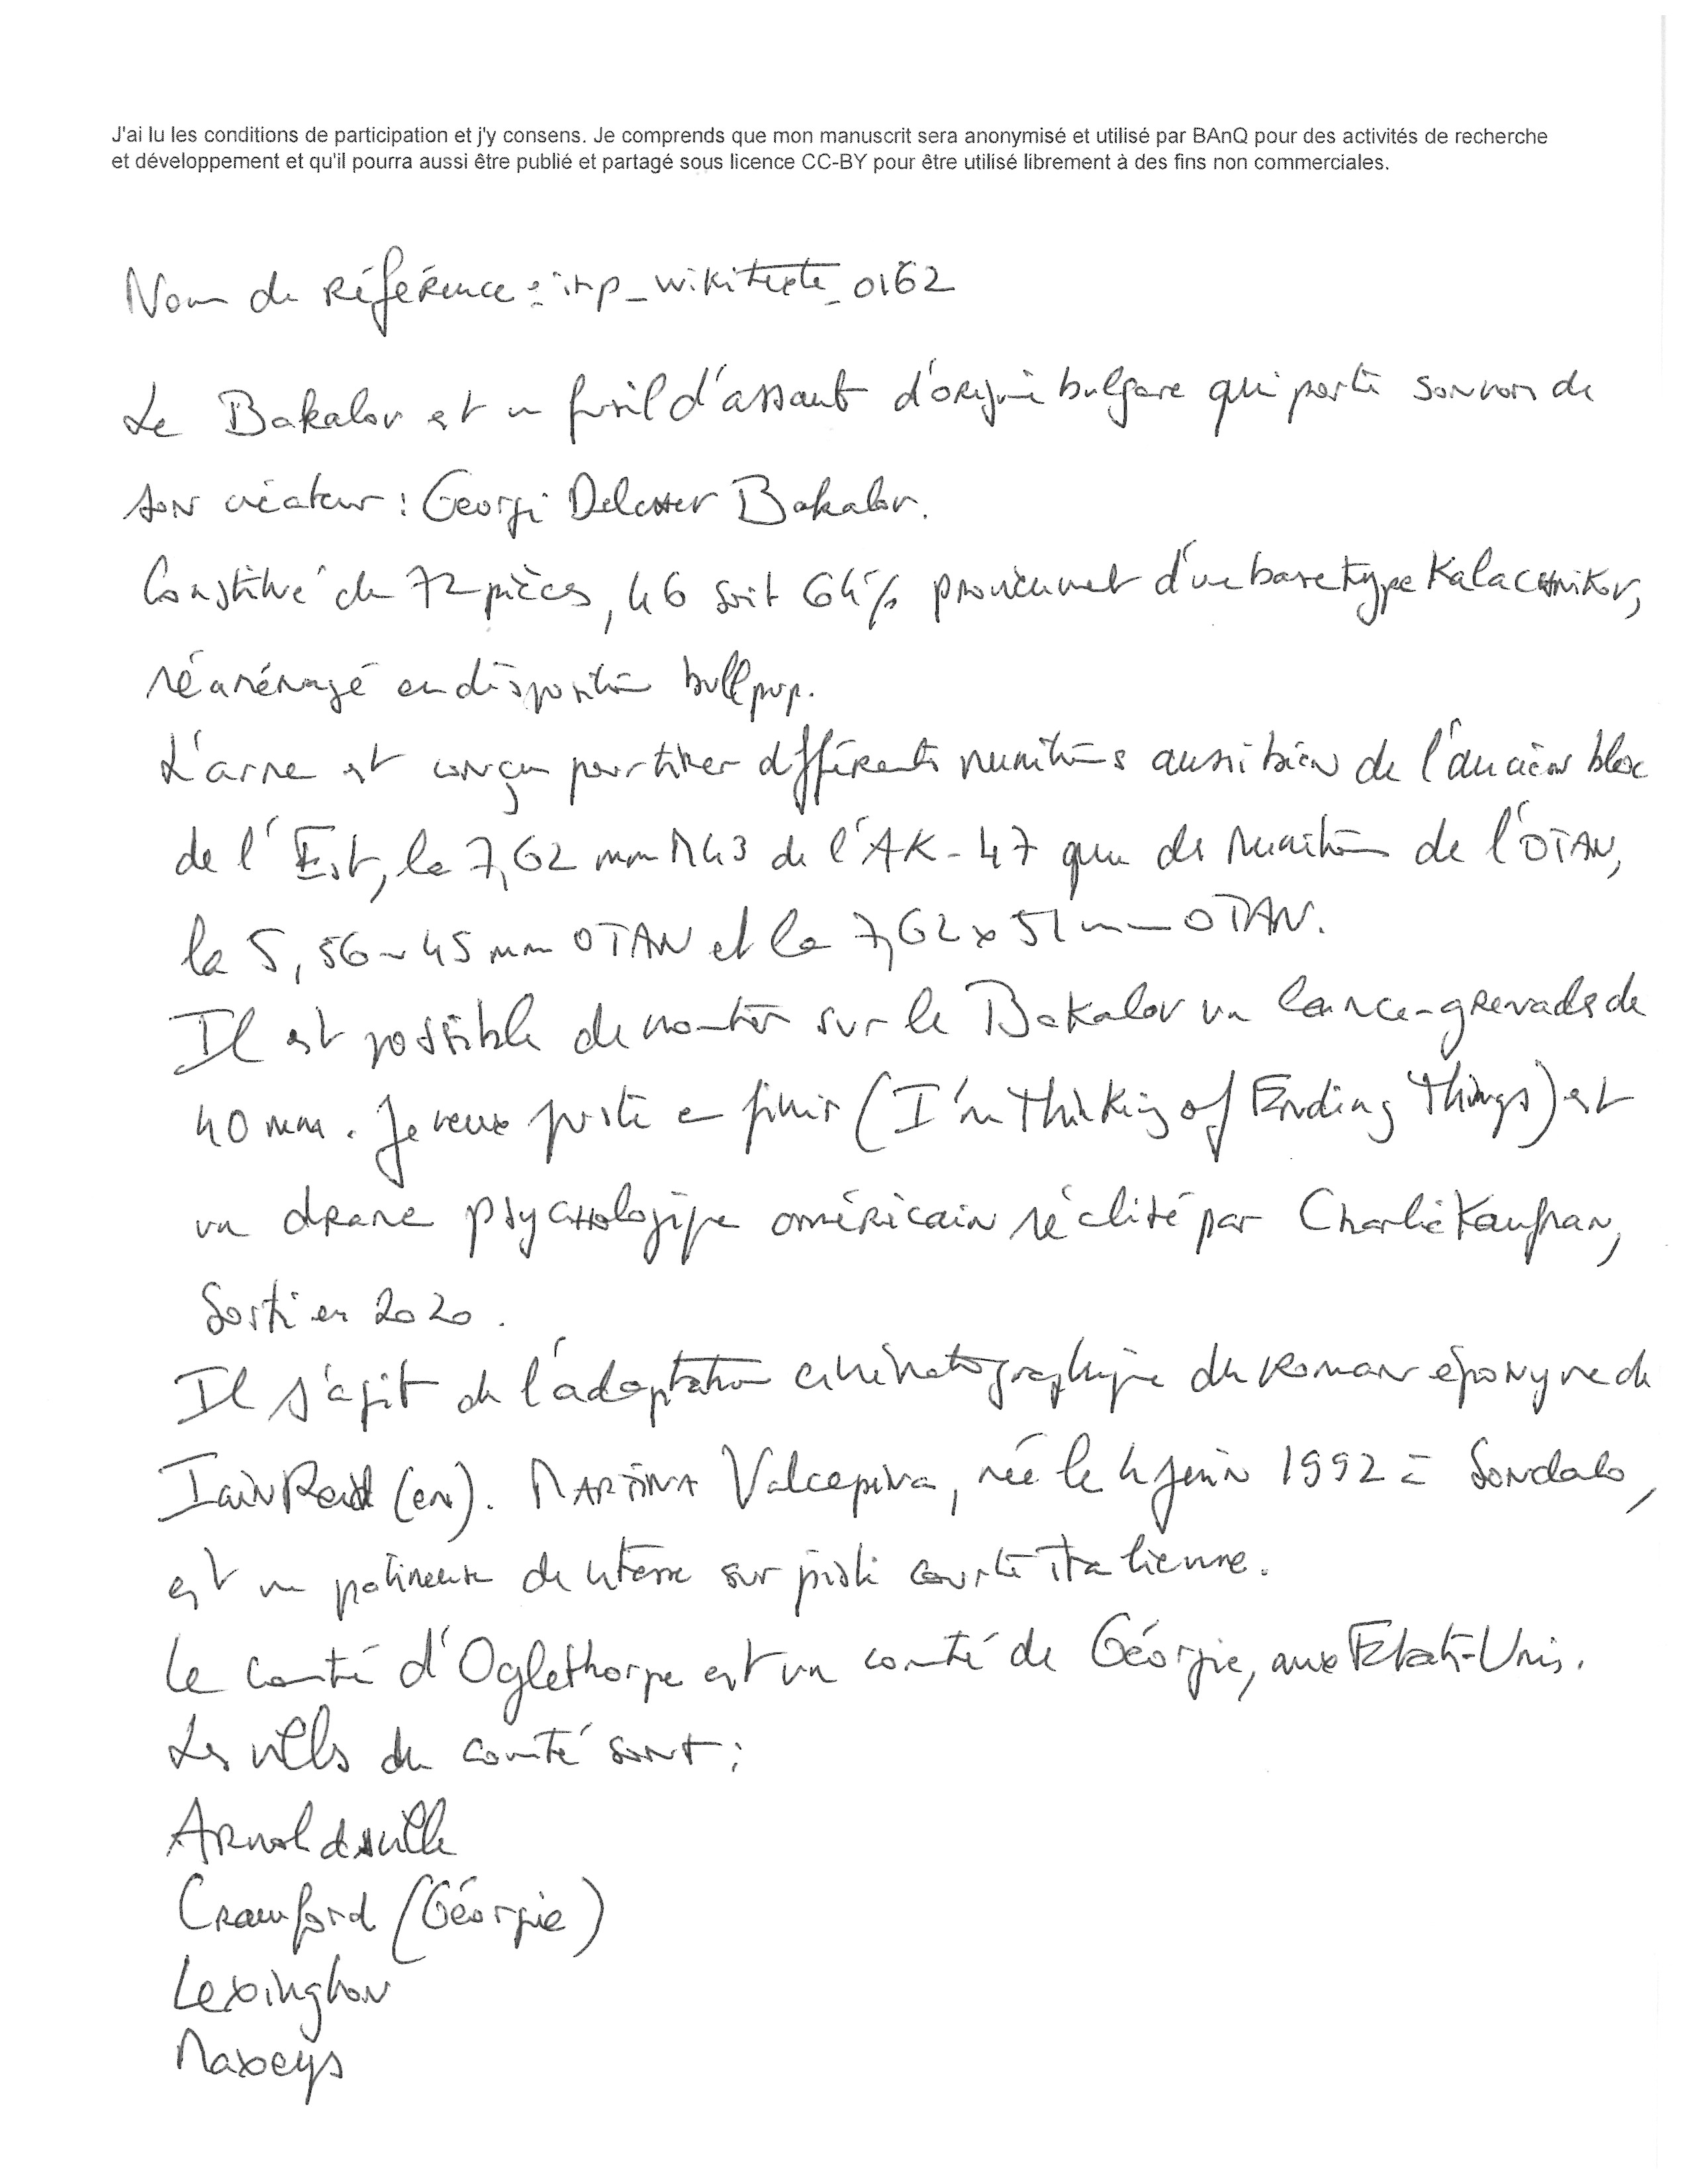 J'ai lu les conditions de participation et j'y consens. Je comprends que mon manuscrit sera anonymisé et utilisé par BAnQ pour des activités de recherche
et développement et qu'il pourra aussi être publié et partagé sous licence CC-BY pour être utilisé librement à des fins non commerciales.
Nom de référence : imp_wikitexte_0162
Le Bakalov est un fusil d'assaut d'origine bulgare qui porte son nom de
son créateur : Georgi Delchev Bakalov.
Constitué de 72 pièces, 46 soit 64% proviennent d'une base type Kalachnikov,
réaménagé en disposition bullpup.
L'arme est conçu pour tirer différents munitions aussi bien de l'ancien bloc
de l'Est, le 7,62 mm M43 de l'AK-47 que des munitions de l'OTAN,
le 5,56 45 mm OTAN et le 7,62 x 51 mm OTAN.
Il est possible de monter sur le Bakalov un lance-grenades de
40 mm. Je veux juste en finir (I'm Thinking of Ending Things) est
un drame psychologique américain réalisé par Charlie Kaufman,
Sorti en 2020.
Il s'agit de l'adaptation cinématographique du roman éponyme de
Iain Reid (en). Martina Valcepina, née le 4 juin 1992 à Sondalo,
est une patineuse de vitesse sur piste courte italienne.
Le comté d'Oglethorpe est un comté de Géorgie, aux Etats-Unis.
Les villes du comté sont :
Arnoldsville
Crawford (Géorgie)
Lexington
Maxeys